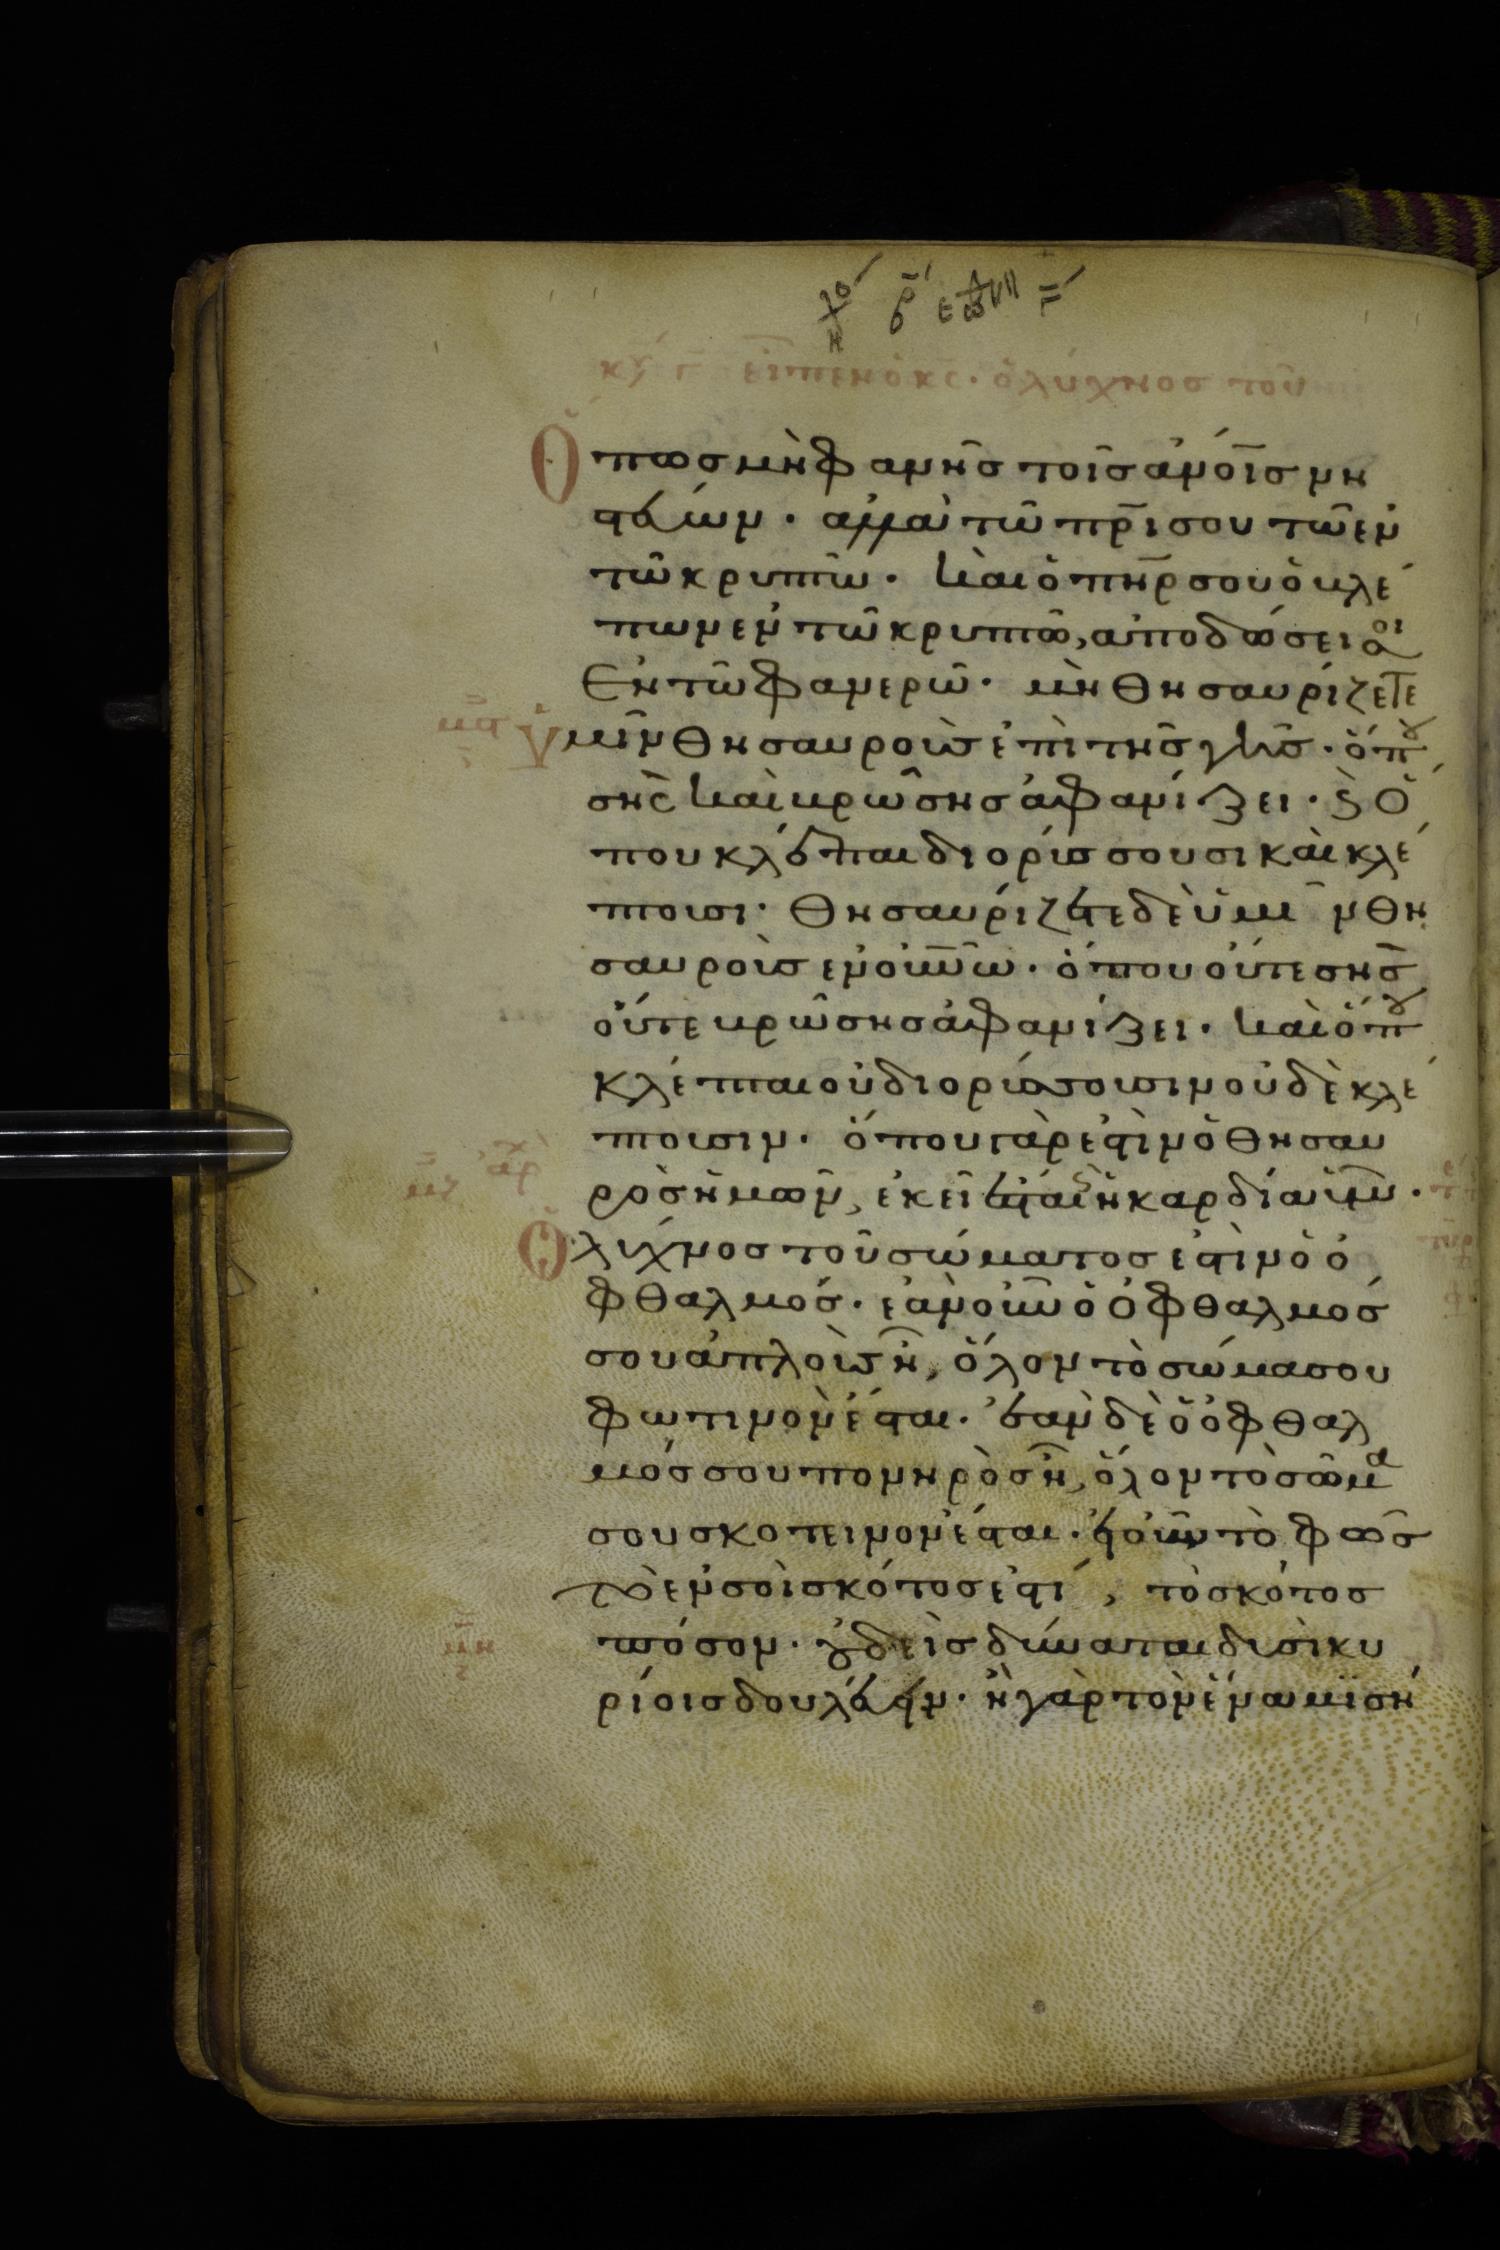 εἶπεν ὁ κς· ὁ λύχνος τοῦ
Ὅπως μὴ φανῆς τοῖς ἀνοῖς νη
στεύων· ἀλλὰ τῶ πρῑ σου τῶ ἐν
τῶ κρυπτῶ· καὶ ὁ πηρ σου ὁ βλέ
πων ἐν τῶ κρυπτῶ, ἀποδώσει σοι
ἐν τῶ φανερῶ· μὴ θησαυρίζετε
ὑμῖν θησαυροὺς ἐπὶ τῆς γῆς· ὅπου
σὴς καὶ βρῶσης ἀφανίζει· ϗ ὅ
που κλέπται διορύσσουσι καὶ κλέ
πτουσι· θησαυρίζετε δὲ ὑμῖν θη
σαυροὺς ἐν οὐνῶ· ὅπου οὔτε σὴς
οὔτε βρῶσης ἀφανίζει· καὶ ὅπου
κλέπται οὐ διορύσσουσιν οὐδὲ κλέ
πτουσιν· ὅπου γάρ ἐστὶν ὁ θησαυ
ρὸς ἡμῶν, ἐκεῖ ἔσται ἡ καρδία ὑμῶν·
Ὁ λύχνος τοῦ σώματος ἐστὶν ὁ ὀ
φθαλμός· ἐὰν οὖν ὁ ὀφθαλμός
σου ἁπλοὺς ἦ, ὅλον τὸ σώμα σου
φωτινὸν ἔσται· ἐὰν δὲ ὁ ὀφθαλ
μός σου πονηρὸς ἦ, ὅλον τὸ σῶμα
σου σκοτεινὸν ἔσται· εἰ οὖν τὸ φῶς
τὸ ἐν σοὶ σκότος ἐστί, τὸ σκότος
πόσον· οὐδεὶς δύναται δυσὶ κυ
ρίοις δουλεύειν· ἢ γὰρ τὸν ἕνα μϊσή